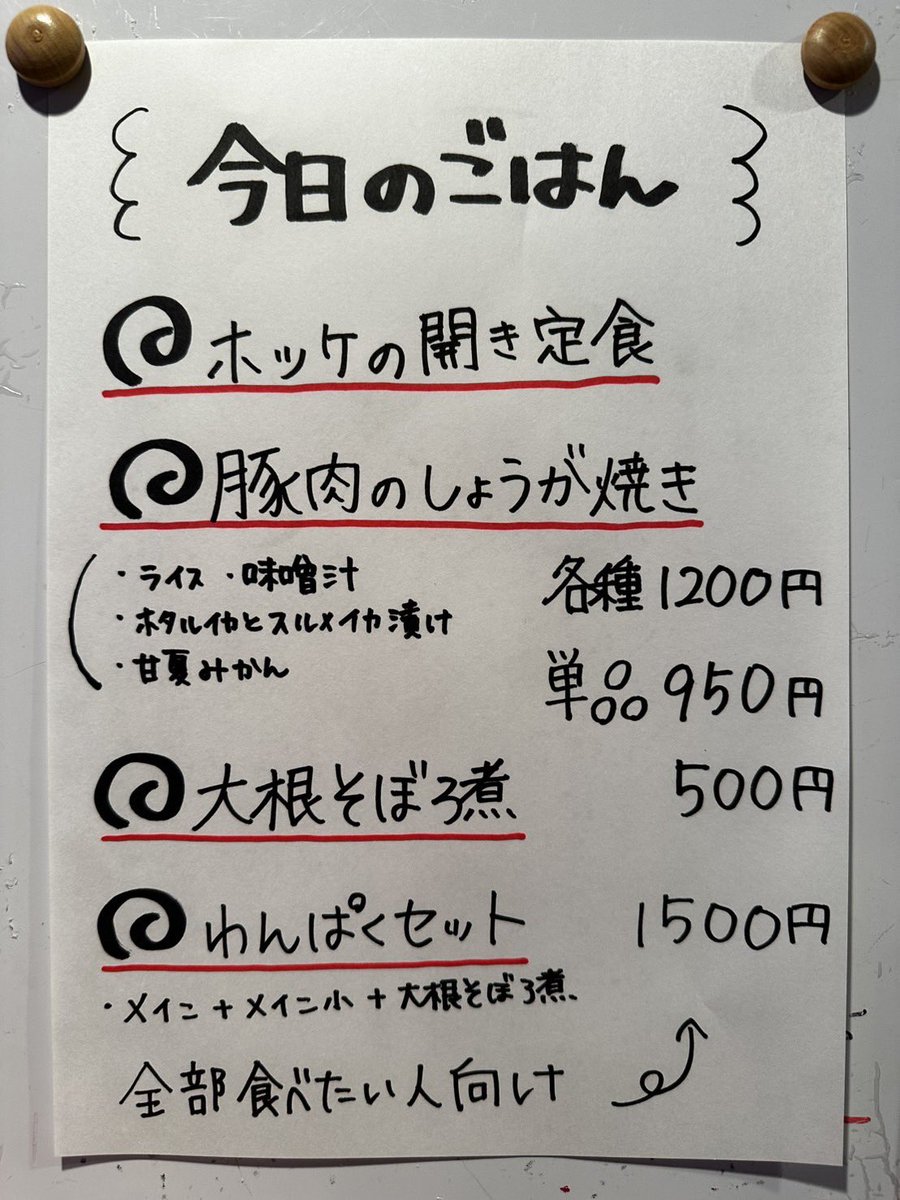 今日のごはん
ホッケの開き定食
豚肉のしょうが焼き
・ライス ・味噌汁
・ホタルイカとスルメイカ漬け
・甘夏みかん
各種 1200円
単品 950円
大根そぼろ煮 500円
わんぱくセット 1500円
・メイン + メイン小 + 大根そぼろ煮
全部食べたい人向け